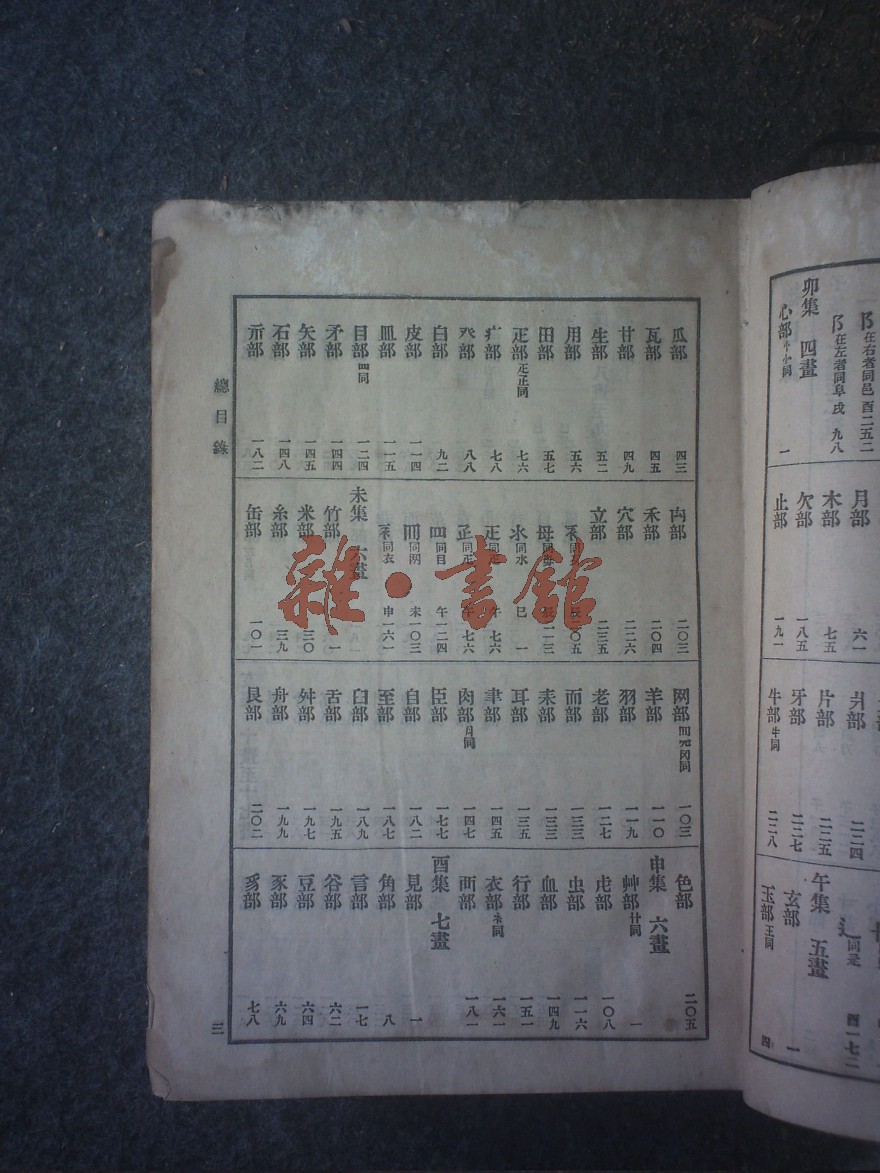 卯集 四畫
心部 忄㣺同 一
阝在左者同阜 戌 九八
阝在右者同邑 酉 二五二
月部 六一
木部 七五
欠部 一八五
止部 一九一
爿部 二二四
片部 二二五
牙部 二二七
牛部 牜同 二二八
辶同辵 酉一七二
午集 五畫
玄部 一
玉部 王同 四
瓜部 四三
瓦部 四五
甘部 四九
生部 五二
用部 五六
田部 五七
疋部 𤴔𤴓同 七六
疒部 七八
癶部 八八
白部 九二
皮部 一一四
皿部 一一五
目部 罒同 一二四
矛部 一四四
矢部 一四五
石部 一四八
示部 一八二
禸部 二〇三
禾部 二〇四
穴部 二二六
立部 二三五
母部
氺同水 巳 一
罒同目 午一二四
𦉪同网 未一〇三
衤同衣 申一六一
未集 六畫
竹部 一
米部 三〇
糸部 三九
缶部 一〇一
网部 一〇三
羊部 一一〇
羽部 一一九
老部 一二七
而部 一三三
耒部 一三三
耳部 一三五
聿部 一四五
肉部 月同 一四七
臣部 一七七
自部 一八二
至部 一八七
臼部 一八九
舌部 一九五
舛部 一九七
舟部 一九九
艮部 二〇二
色部 二〇五
申集 六畫
艸部 艹同 一
虍部 一〇八
虫部 一一六
血部 一四九
行部 一五一
衣部 衤同 一六一
襾部 一八一
酉集 七畫
見部 一
角部 八
言部 一七
谷部 六二
豆部 六四
豕部 六九
豸部 七八
總目錄
三
雜·書館